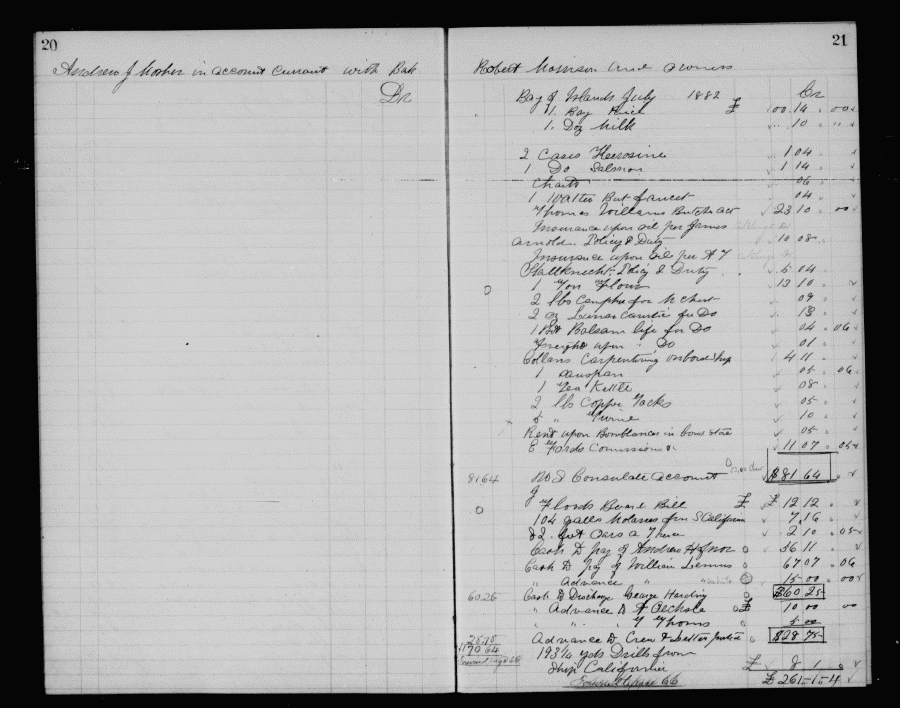 20
Andrew J Mosher in account Currant with Bark
Dr
21
Robert Morrison and owners
Cr
Bay of Islands July 1882
1. Bag Rice £ 00 14 00
1. Doz Milk 10 "
2 Cases Keerosine 1 04
1 Do Salmon 1 14
Charts 06
1 Water But faucet 04
Thomas Williams Butcher act 23 10 00
Insurance upon oil per James
Arnold Policy & Duty 10 08
Insurance upon oil per A T
Stallknecht. Policy & Duty 5 04
1 Ton Flour 13 10
2 lbs Camphor for M Chest 09
2 oz Lunar Caustic for Do 13
1 Bot Balsam life for Do 04 06
Freight upon " Do 01
Collans Carpentering onboard ship 4 11
1 Sauspan 05 06
1 Tea Kettle 08
2 lbs Copper Tacks 05
5 " Twine 10
Rent upon in bond store 05
E Fords Commissions 11 07 05
8164 Consulate account $81 64
Floods Board Bill £ £ 12 12
104 galls Molasses from S California 7,16
82 feet Oars 2 10 05
Cash D pay of Andrew H 36 11
Cash D pay of William Lemus 67 07 06
" Advance " 15 00 00
60.25 Cash D Discharge George Harding $60 25
" Advance D F £ 10 00 00
" " " 5 00
28.75 Advance D Crew $28 75
170 64 193¼ yds Drills from
Ship California £ 8 1 0
£ 261-1-4
66